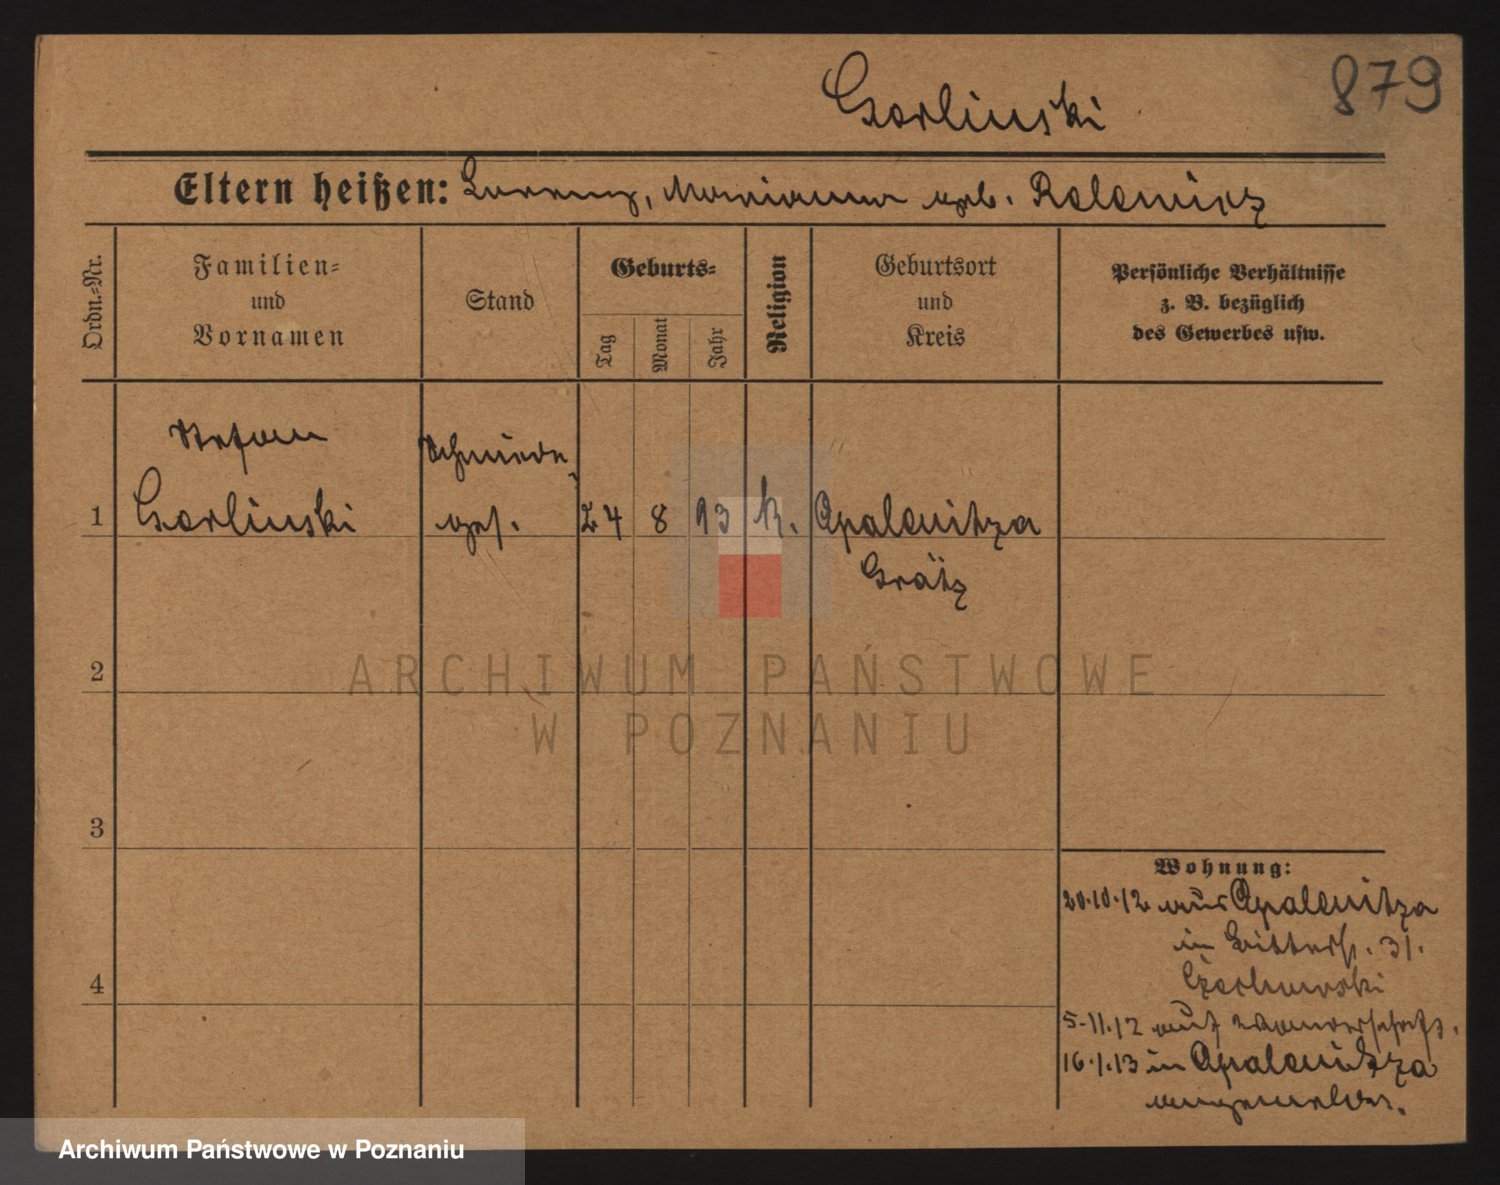 879
Gorlinski
Eltern heißen: Lorenz, Marianna geb.
Ordn.=Nr.
Familien=
und
Vornamen
Stand
Geburts=
Tag
Monat
Jahr
Religion
Geburtsort
und
Kreis
Persönliche Verhältnisse
z. B. bezüglich
des Gewerbes usw.
Stefan
Schmiede
1 Gorlinski ges. 24 8 93 k. Opalenitza
Grätz
2
3
4
Wohnung:
20.10.12 aus Opalenitza
in Ritterstr. 31.
5.11.12 auf Wanderschaft.
16.1.13 in Opalenitza
angemeldet.
ARCHIWUM PAŃSTWOWE
W POZNANIU
Archiwum Państwowe w Poznaniu